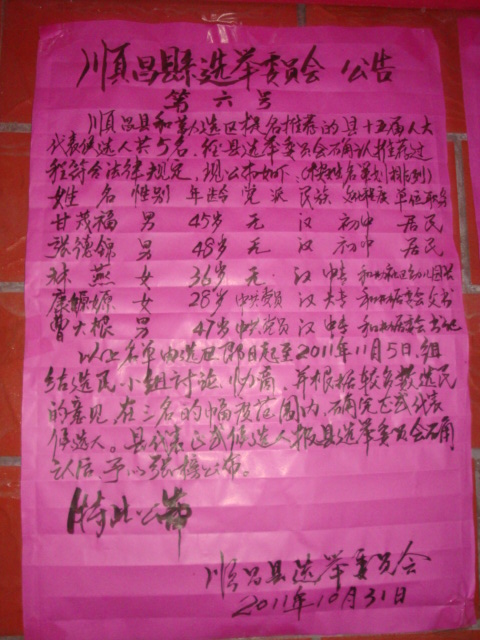 顺昌县选举委员会 公告
第六号
顺昌县和 选区提名推荐的县十五届人大
代表候选人共5名,经县选举委员会确认推荐过
程符合法律规定,现公布如下:(按姓名笔划排列)
姓名 性别 年龄 党派 民族 程度 单位职务
甘茂福 男 45岁 无 汉 初中 居民
张德锦 男 48岁 无 汉 初中 居民
林燕 女 36岁 无 汉 中专
康 女 28岁 中共党员 汉 大专
曹大根 男 47岁 中共党员 汉 中专
以上名单由选区即日起至2011年11月5日,组
织选民小组讨论、协商,并根据较多数选民
的意见,在三名的幅度范围内,确定正式代表
候选人。县代表正式候选人报县选举委员会确
认后,予以张榜公布。
特此公布
顺昌县选举委员会
2011年10月31日